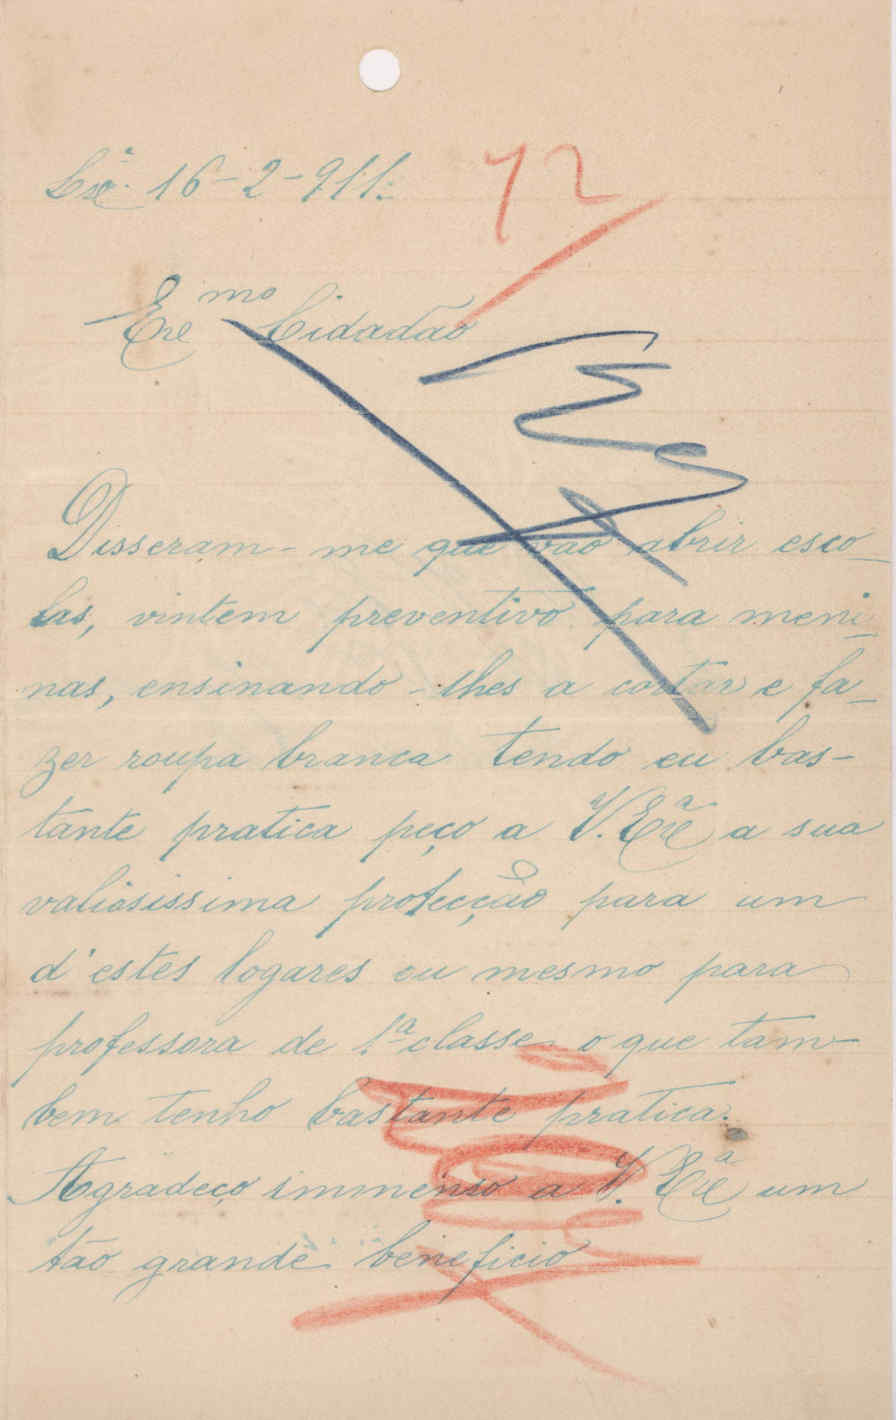 Lxª. 16-2-911.
72
Exmo Cidadão
Disseram-me que vão abrir esco_
las, vintem preventivo para meni_
nas, ensinando-lhes a cortar e fa_
zer roupa branca tendo eu bas-
tante pratica peço a V. Exª a sua
valiosissima protecção para um
d'estes logares ou mesmo para
professora de 1ª classe o que tam-
bem tenho bastante pratica.
Agradeço immenso a V. Exª um
tão grande beneficio